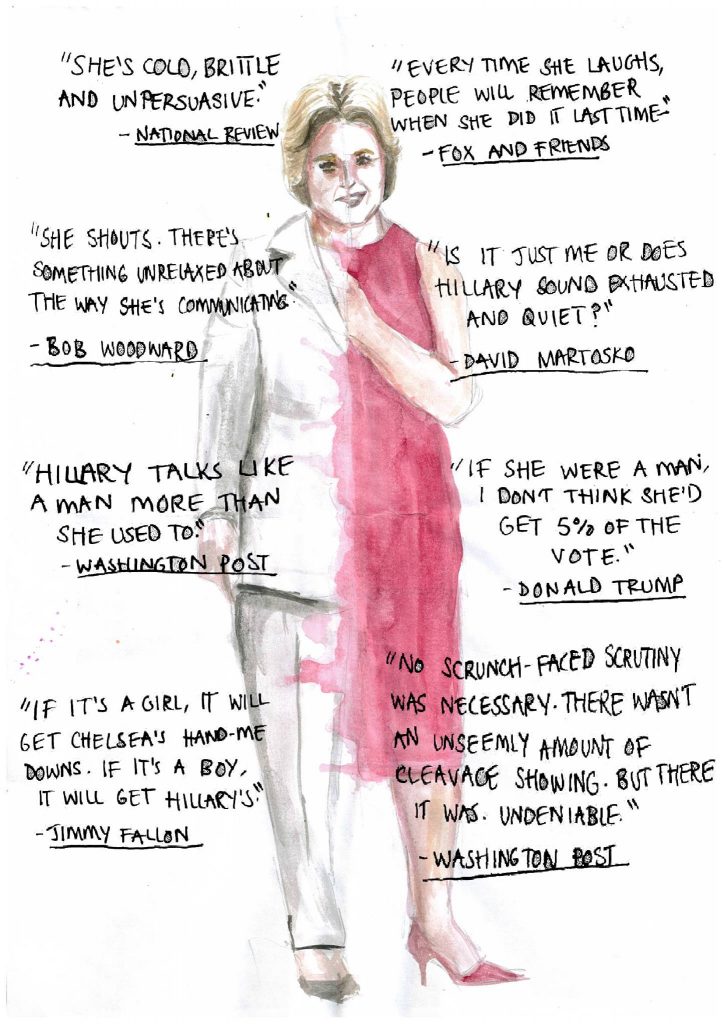 "SHE'S COLD, BRITTLE
AND UNPERSUASIVE."
- NATIONAL REVIEW
"EVERY TIME SHE LAUGHS,
PEOPLE WILL REMEMBER
WHEN SHE DID IT LAST TIME-"
- FOX AND FRIENDS
"SHE SHOUTS. THERE'S
SOMETHING UNRELAXED ABOUT
THE WAY SHE'S COMMUNICATING."
- BOB WOODWARD
"IS IT JUST ME OR DOES
HILLARY SOUND EXHAUSTED
AND QUIET?"
- DAVID MARTOSKO
"HILLARY TALKS LIKE
A MAN MORE THAN
SHE USED TO."
- WASHINGTON POST
"IF SHE WERE A MAN,
I DON'T THINK SHE'D
GET 5% OF THE
VOTE."
- DONALD TRUMP
"IF IT'S A GIRL, IT WILL
GET CHELSEA'S HAND-ME
DOWNS. IF IT'S A BOY,
IT WILL GET HILLARY'S."
- JIMMY FALLON
"NO SCRUNCH-FACED SCRUTINY
WAS NECESSARY. THERE WASN'T
AN UNSEEMLY AMOUNT OF
CLEAVAGE SHOWING. BUT THERE
IT WAS. UNDENIABLE."
- WASHINGTON POST